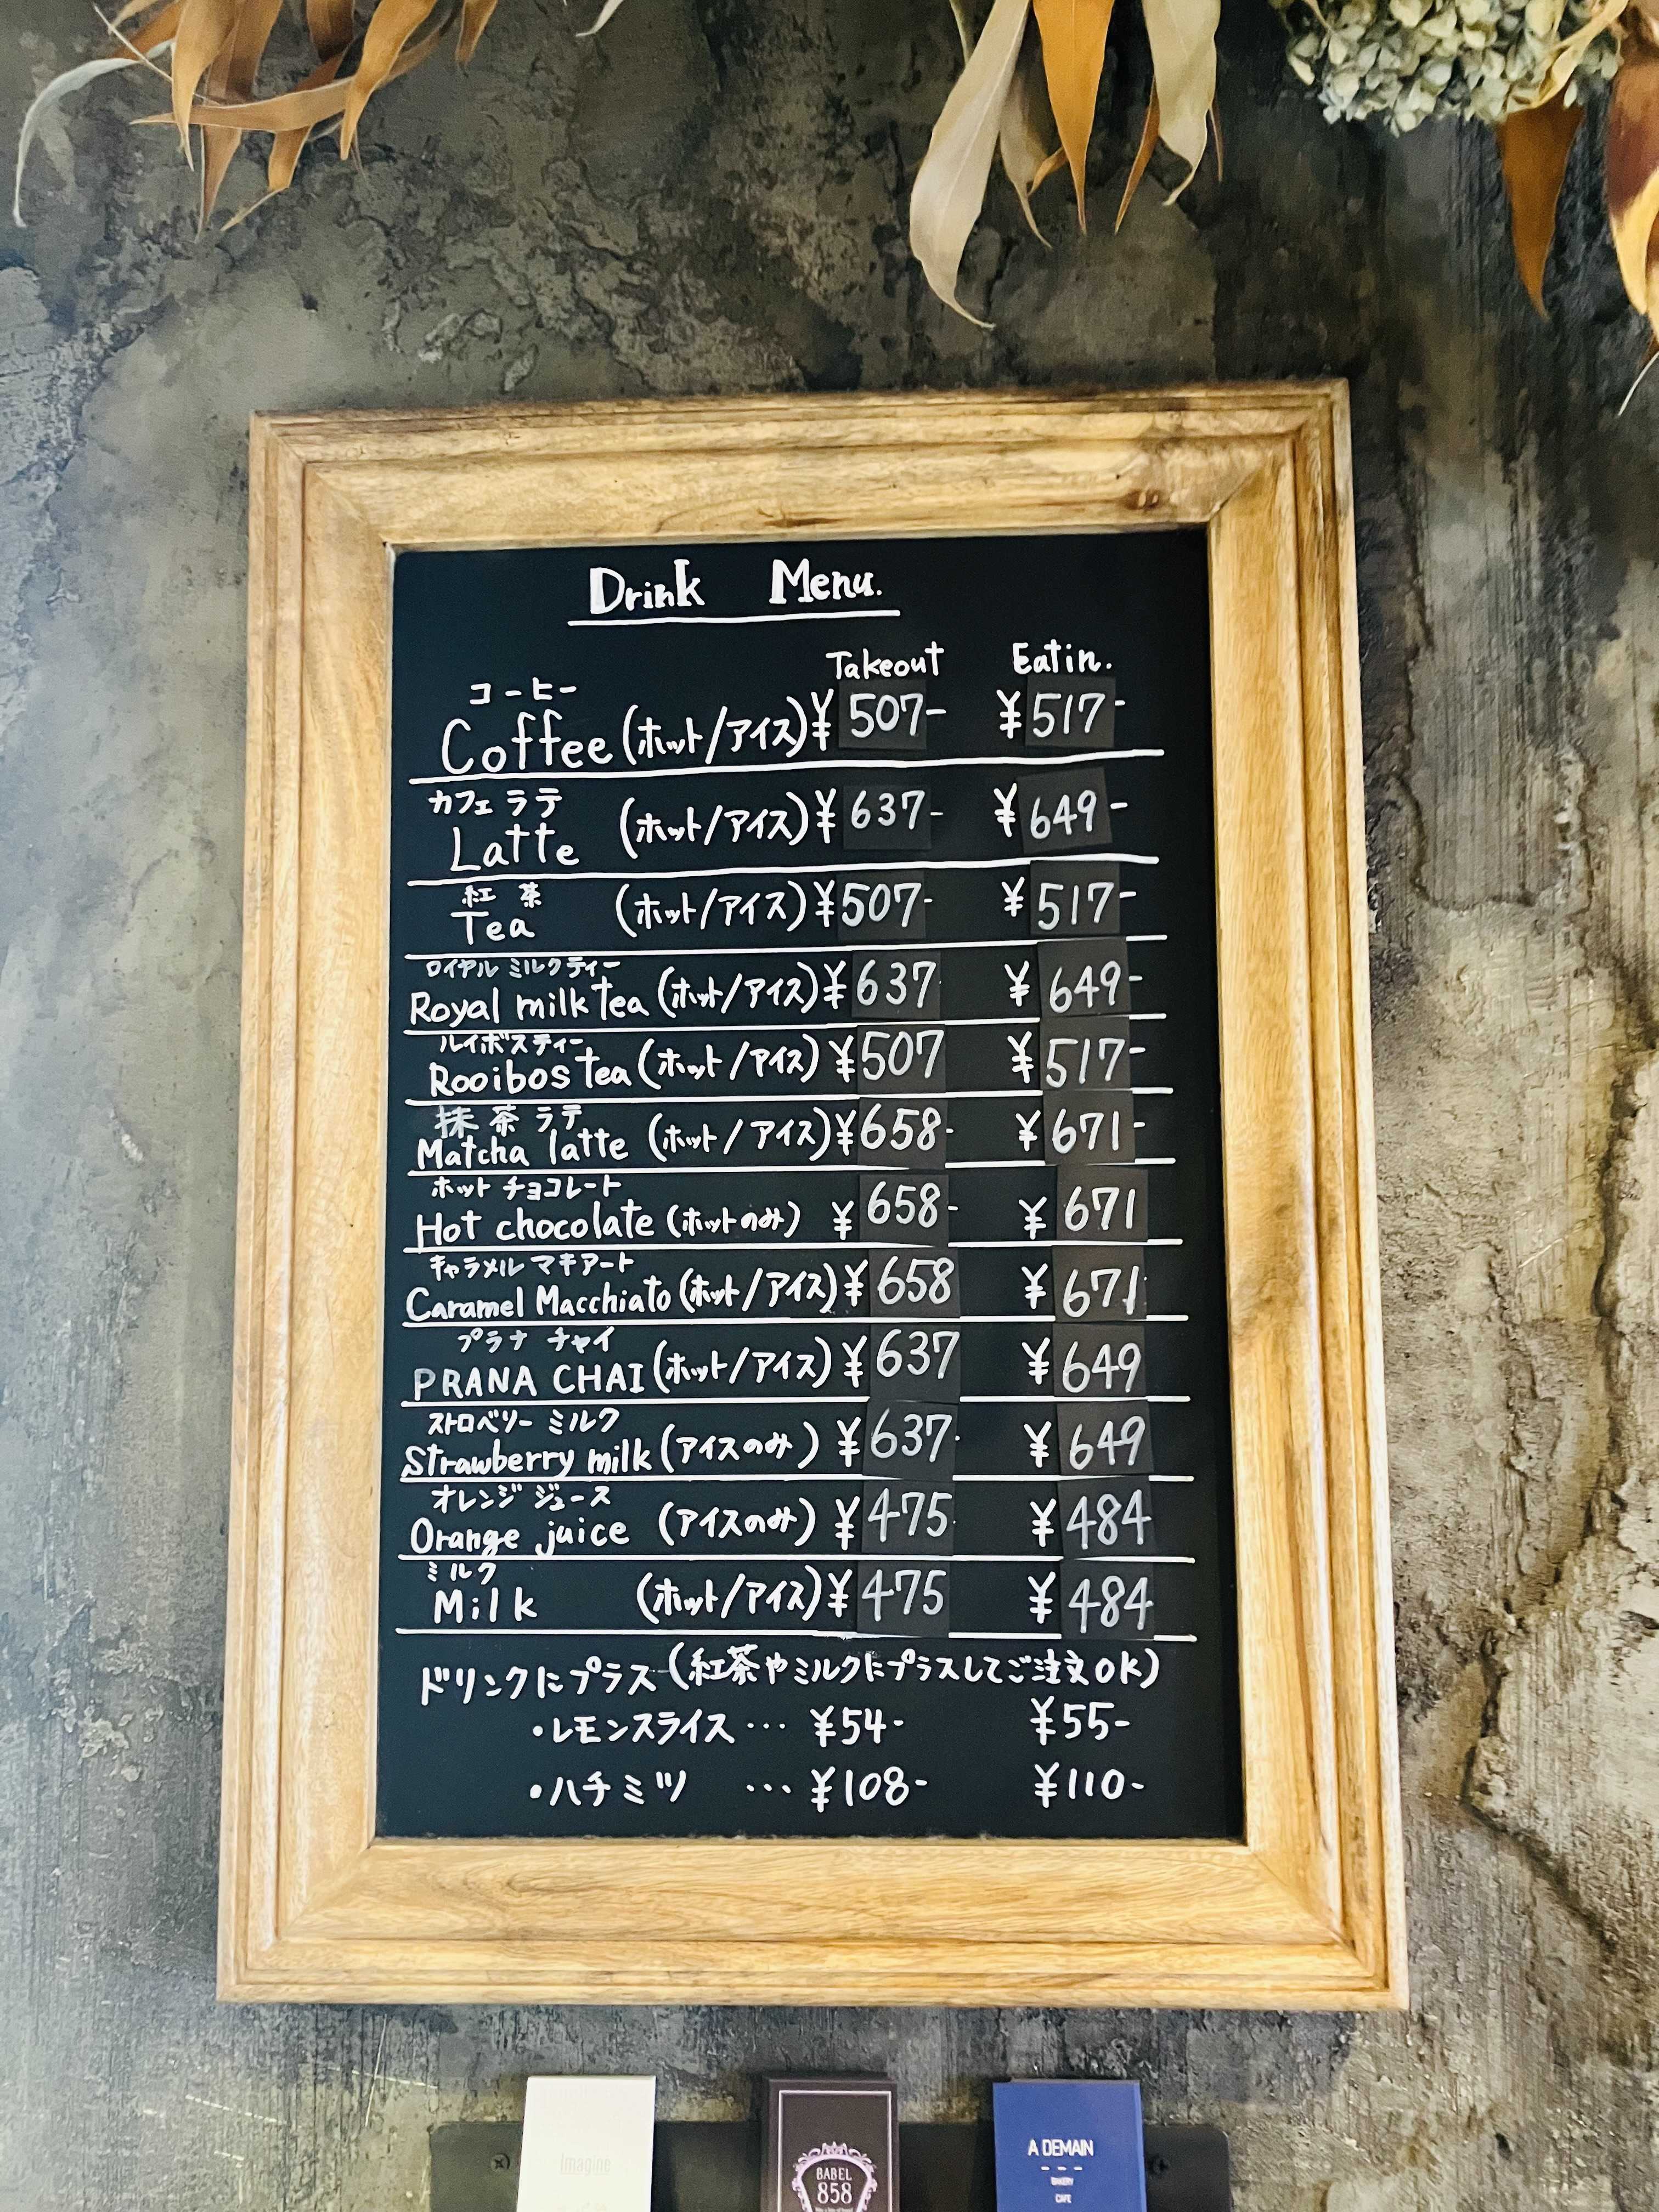 Drink Menu.
Takeout Eatin.
コーヒー
Coffee (ホット/アイス) ¥507- ¥517-
カフェ ラテ
Latte (ホット/アイス) ¥637- ¥649-
紅茶
Tea (ホット/アイス) ¥507- ¥517-
ロイヤル ミルクティー
Royal milk tea (ホット/アイス) ¥637 ¥649-
ルイボスティー
Rooibos tea (ホット/アイス) ¥507 ¥517-
抹茶ラテ
Matcha latte (ホット/アイス) ¥658- ¥671-
ホット チョコレート
Hot chocolate (ホットのみ) ¥658- ¥671
キャラメル マキアート
Caramel Macchiato (ホット/アイス) ¥658 ¥671
プラナ チャイ
PRANA CHAI (ホット/アイス) ¥637 ¥649
ストロベリー ミルク
Strawberry milk (アイスのみ) ¥637 ¥649
オレンジ ジュース
Orange juice (アイスのみ) ¥475 ¥484
ミルク
Milk (ホット/アイス) ¥475 ¥484
ドリンクにプラス (紅茶やミルクにプラスしてご注文OK)
・レモンスライス … ¥54- ¥55-
・ハチミツ … ¥108- ¥110-
Imagine
BABEL
858
A DEMAIN
BAKERY
CAFE